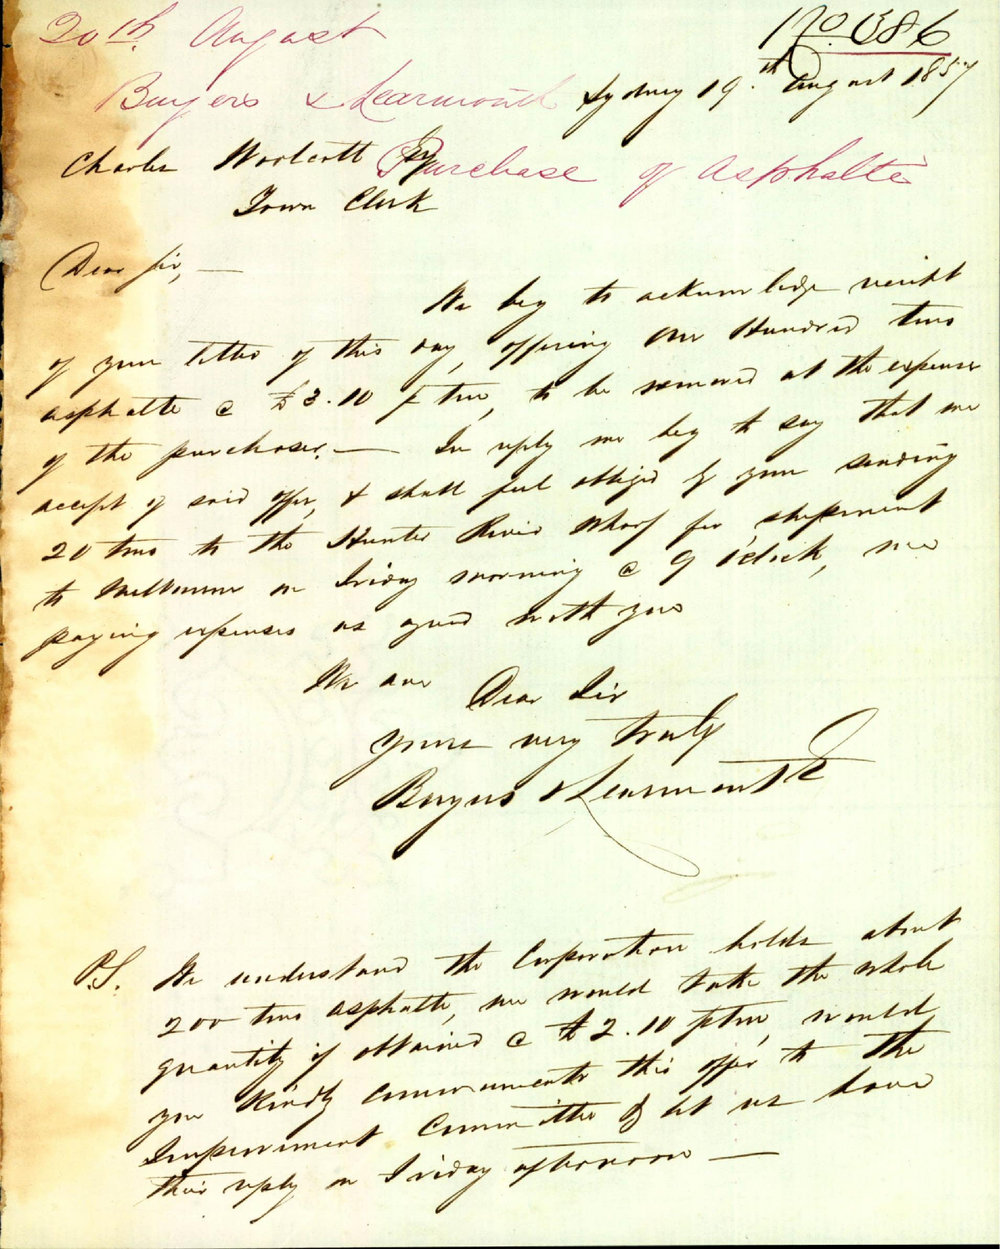 20th August
No. 686
Buyers & Learmonth
Sydney 19th August 1857
Charles Woolcott Esq
Purchase of Asphalte
Town Clerk
Dear Sir, —
We beg to acknowledge receipt
of your letter of this day, offering One Hundred tons
asphalte @ £3.10 p ton, to be removed at the expense
of the purchaser. — In reply we beg to say that we
accept of said offer, & shall feel obliged by your sending
20 tons to the Hunter River Wharf for shipment
to Melbourne on Friday morning @ 9 o'clock, we
paying expenses as agreed with you
We are Dear Sir
Yours very truly
Buyers & Learmonth
P.S. We understand the Corporation holds about
200 tons asphalte, we would take the whole
quantity if obtained @ £2.10 p ton, would
you kindly communicate this offer to the
Improvement Committee & let us have
their reply on Friday afternoon —